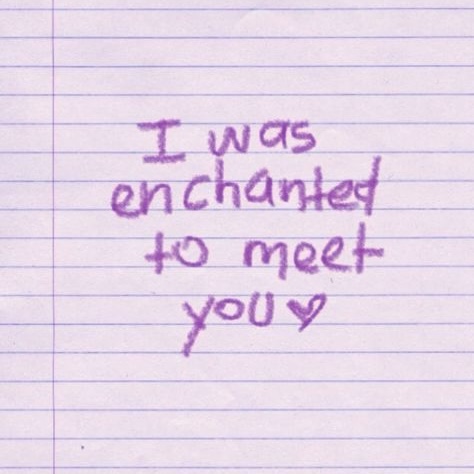 I was
enchanted
to meet
you♥